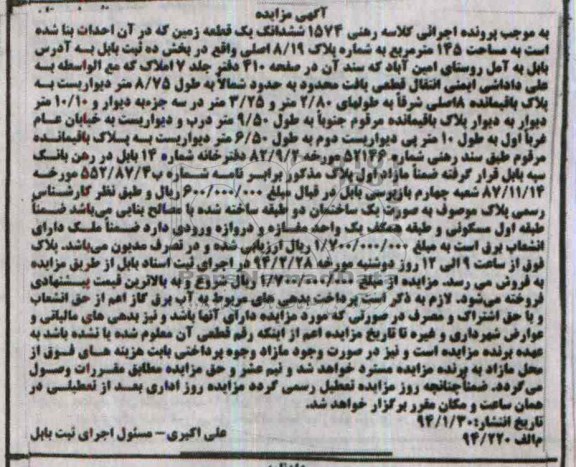 آگهی مزایده
به موجب پرونده اجرائی کلاسه رهنی ۱۵۷۴ ششدانگ یک قطعه زمین که در آن احداث بنا شده
است به مساحت ۱۴۵ مترمربع به شماره پلاک ۸/۱۹ اصلی واقع در بخش ده ثبت بابل به آدرس
بابل به آمل روستای امین آباد که سند آن در صفحه ۴۱۰ دفتر جلد ۷ املاک که مع الواسطه به
علی داداشی ایمنی انتقال قطعی یافت محدود به حدود شمالاً به طول ۸/۷۵ متر دیواریست به
پلاک باقیمانده ۸اصلی شرقاً به طولهای ۲/۸۰ متر و ۳/۲۵ متر در سه جزءبه دیوار و ۱۰/۱۰ متر
دیوار به دیوار پلاک باقیمانده مرقوم جنوباً به طول ۹/۵۰ متر درب و دیواریست به خیابان عام
غرباً اول به طول ۱۰ متر پی دیواریست دوم به طول ۶/۵۰ متر دیواریست به پلاک باقیمانده
مرقوم طبق سند رهنی شماره ۵۲۱۴۶ مورخه ۸۲/۹/۲ دفترخانه شماره ۱۴ بابل در رهن بانک
سپه بابل قرار گرفته ضمناً مازاد اول پلاک مذکور برابر نامه شماره ب۵۵۲/۸۷/۴ مورخه
۸۷/۱۱/۱۴ شعبه چهارم بازپرسی بابل در قبال مبلغ ۶۰۰/۰۰۰/۰۰۰ ریال و طبق نظر کارشناس
رسمی پلاک موصوف به صورت یک ساختمان دو طبقه ساخته شده با مصالح بنایی می‌باشد ضمناً
طبقه اول مسکونی و طبقه همکف یک واحد مغازه و دروازه ورودی دارد ضمناً ملک دارای
انشعاب برق است به مبلغ ۱/۷۰۰/۰۰۰/۰۰۰ ریال ارزیابی شده و در تصرف مدیون می‌باشد. پلاک
فوق از ساعت ۹ الی ۱۲ روز دوشنبه مورخه ۹۴/۲/۲۸ در اجرای ثبت اسناد بابل از طریق مزایده
به فروش می رسد. مزایده از مبلغ ۱/۷۰۰/۰۰۰/۰۰۰ ریال شروع و به بالاترین قیمت پیشنهادی
فروخته می‌شود. لازم به ذکر است پرداخت بدهی های مربوط به آب برق گاز اعم از حق انشعاب
و یا حق اشتراک و مصرف در صورتی که مورد مزایده دارای آنها باشد و نیز بدهی های مالیاتی و
عوارض شهرداری و غیره تا تاریخ مزایده اعم از اینکه رقم قطعی آن معلوم شده یا نشده باشد به
عهده برنده مزایده است و نیز در صورت وجود مازاد وجوه پرداختی بابت هزینه های فوق از
محل مازاد به برنده مزایده مسترد خواهد شد و نیم عشر و حق مزایده مطابق مقررات وصول
می‌گردد. ضمناًچنانچه روز مزایده تعطیل رسمی گردد مزایده روز اداری بعد از تعطیلی در
همان ساعت و مکان مقرر برگزار خواهد شد.
تاریخ انتشار:۹۴/۱/۳۰
م‌الف ۹۴/۲۲۰ علی اکبری – مسئول اجرای ثبت بابل